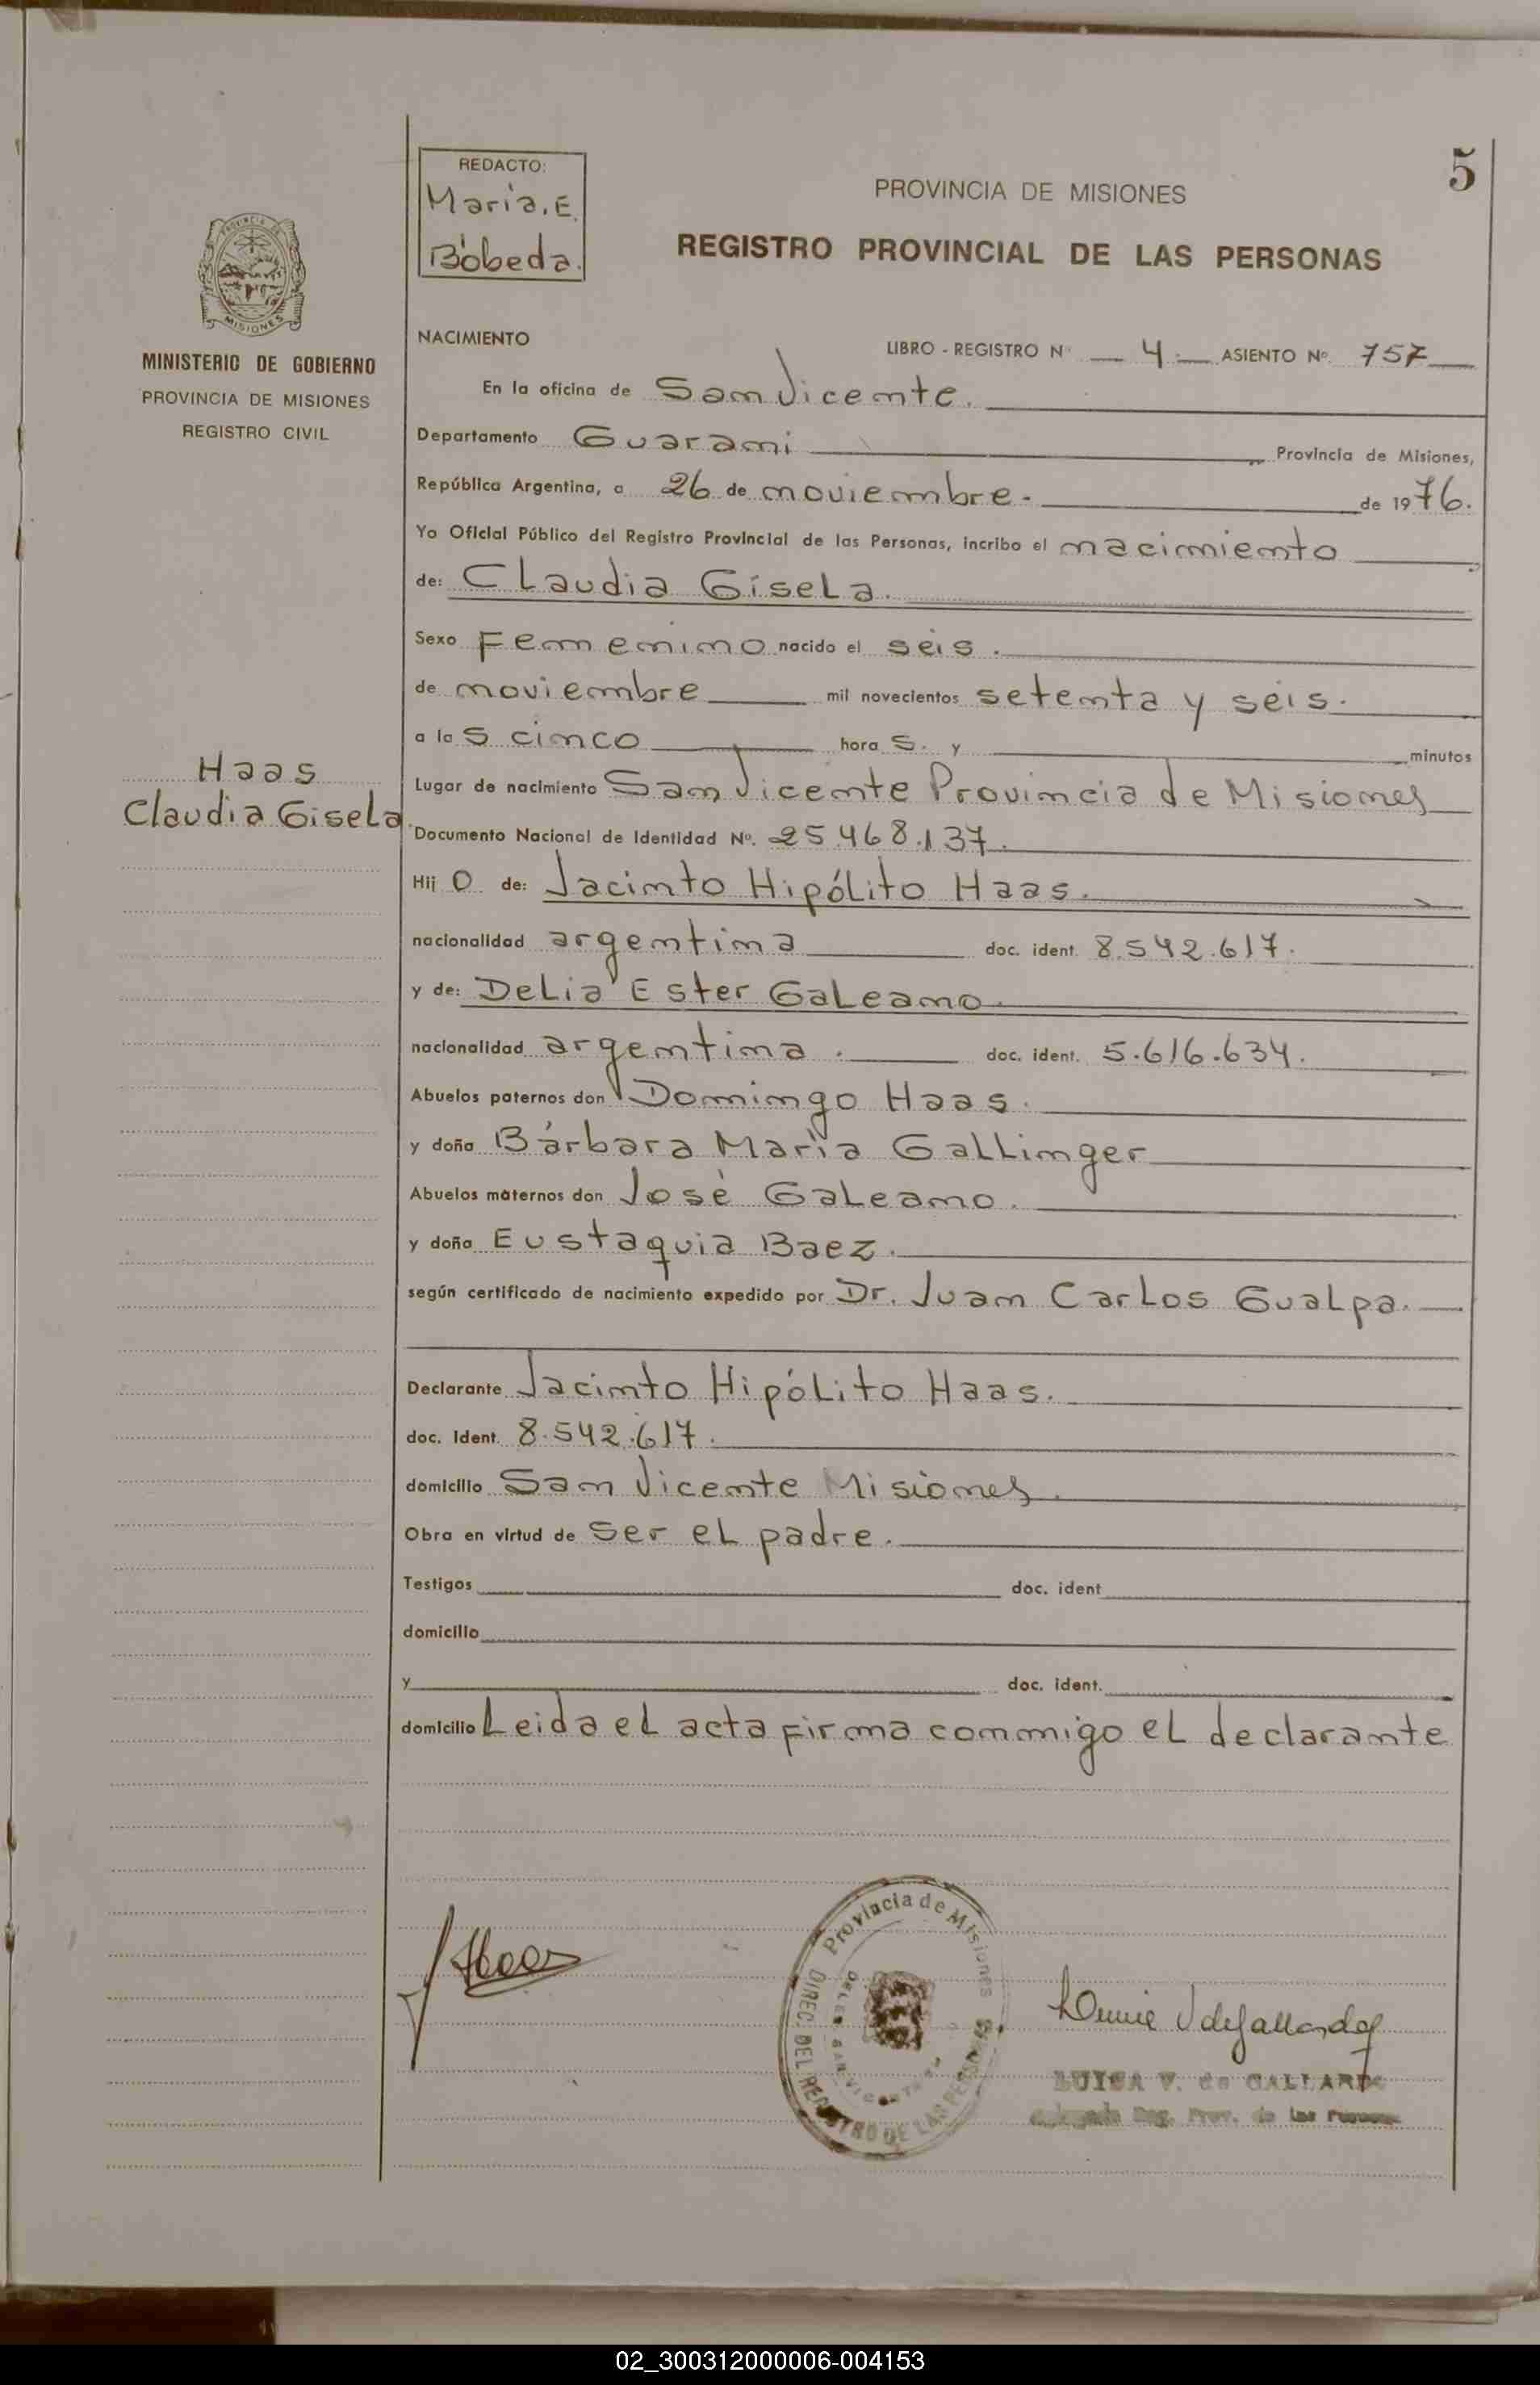 5
REDACTO:
María. E.
Bóbeda.
PROVINCIA DE MISIONES
REGISTRO PROVINCIAL DE LAS PERSONAS
PROVINCIA DE
MISIONES
MINISTERIO DE GOBIERNO
PROVINCIA DE MISIONES
REGISTRO CIVIL
NACIMIENTO
LIBRO - REGISTRO Nº 4. ASIENTO Nº. 757
En la oficina de San Vicente.
Departamento Guarani Provincia de Misiones,
República Argentina, a 26 de noviembre. de 1976.
Yo Oficial Público del Registro Provincial de las Personas, incribo el nacimiento
de: Claudia Gisela.
Sexo Femenino nacido el seis.
de noviembre mil novecientos setenta y seis.
a las cinco horas. y minutos
Haas
Claudia Gisela
Lugar de nacimiento San Vicente Provincia de Misiones
Documento Nacional de Identidad Nº. 25.468.137.
Hijo de: Jacinto Hipólito Haas.
nacionalidad argentina doc. ident. 8.542.617.
y de: Delia Ester Galeano.
nacionalidad argentina. doc. ident. 5.616.634.
Abuelos paternos don Domingo Haas.
y doña Bárbara María Gallinger
Abuelos maternos don José Galeano.
y doña Eustaquia Baez.
según certificado de nacimiento expedido por Dr. Juan Carlos Gualpa.
Declarante Jacinto Hipólito Haas.
doc. Ident. 8.542.617.
domicilio San Vicente Misiones.
Obra en virtud de ser el padre.
Testigos doc. ident
domicilio
y doc. ident.
domicilio Leida el acta firma conmigo el declarante
Haas
Provincia de Misiones
DIREC. DEL REGISTRO DE LAS PERSONAS
LUISA V. de GALLARDO
Reg. Prov. de las Personas
02_300312000006-004153